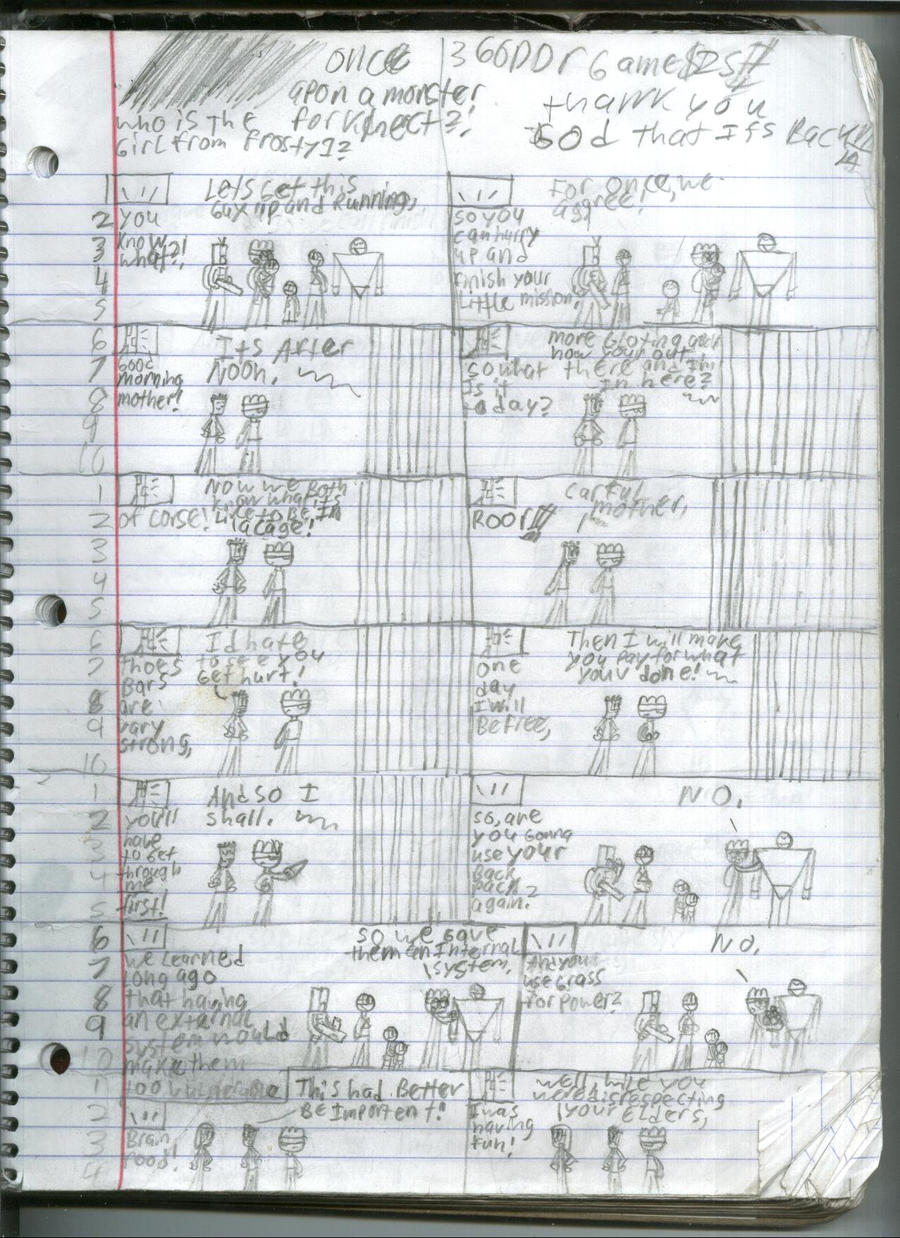 once
apon a monster
for Kinect?!
who is the
girl from Frosty1?
360DDr Game
thank you
God that Its Back!!
2
3
4
5
6
7
8
9
10
1
2
3
4
5
6
7
8
9
10
1
2
3
4
5
6
7
8
9
10
1
2
3
4
you
know
what?!
Lets Get this
Guy up and Running,
so you
can hurry
up and
finish your
Little mission,
For once, we
agree!
Good
morning
mother!
Its After
Noon,
so what
Is it
to day?
more Gloting
how your out
there and Im
In here?
of corse!
Now we Both
know what its
Like to Be In
a cage!
ROOr!!
carful
mother,
thoes
Bars
are
vary
strong,
I'd hate
to see you
Get hurt!
one
day
I will
Be free,
Then I will make
you Pay for what
youv done!
you'll
have
to Get
through
me
first!
And so I
shall.
so, are
you Gonna
use your
Back
pack
again?
NO.
we Learned
Long ago
that having
an external
system would
make them
too
so we Gave
them an Internal
system,
And you
use Grass
for power?
No.
Brain
Food!
This had Better
Be Importent!
I was
having
fun!
well, hile you
were disrespecting
your Elders,